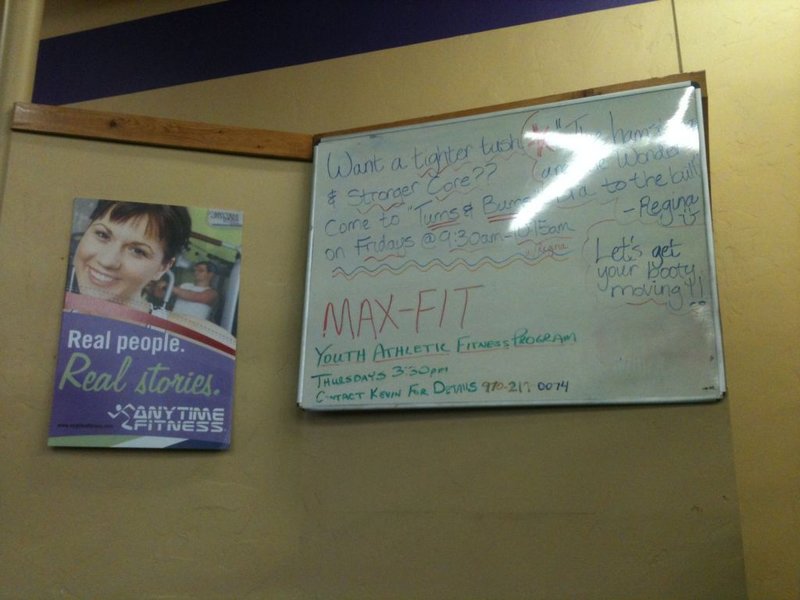 Real people.
Real stories.
ANYTIME
FITNESS
Want a tighter tush
& Stronger Core??
Come to "Tums & Bums
on Fridays @ 9:30am-10:15am
w/ Regina
to the bull
-Regina
Let's get
your booty
moving!!
MAX-FIT
YOUTH ATHLETIC FITNESS PROGRAM
THURSDAYS 3:30pm
CONTACT KEVIN FOR DETAILS 970-217 0074